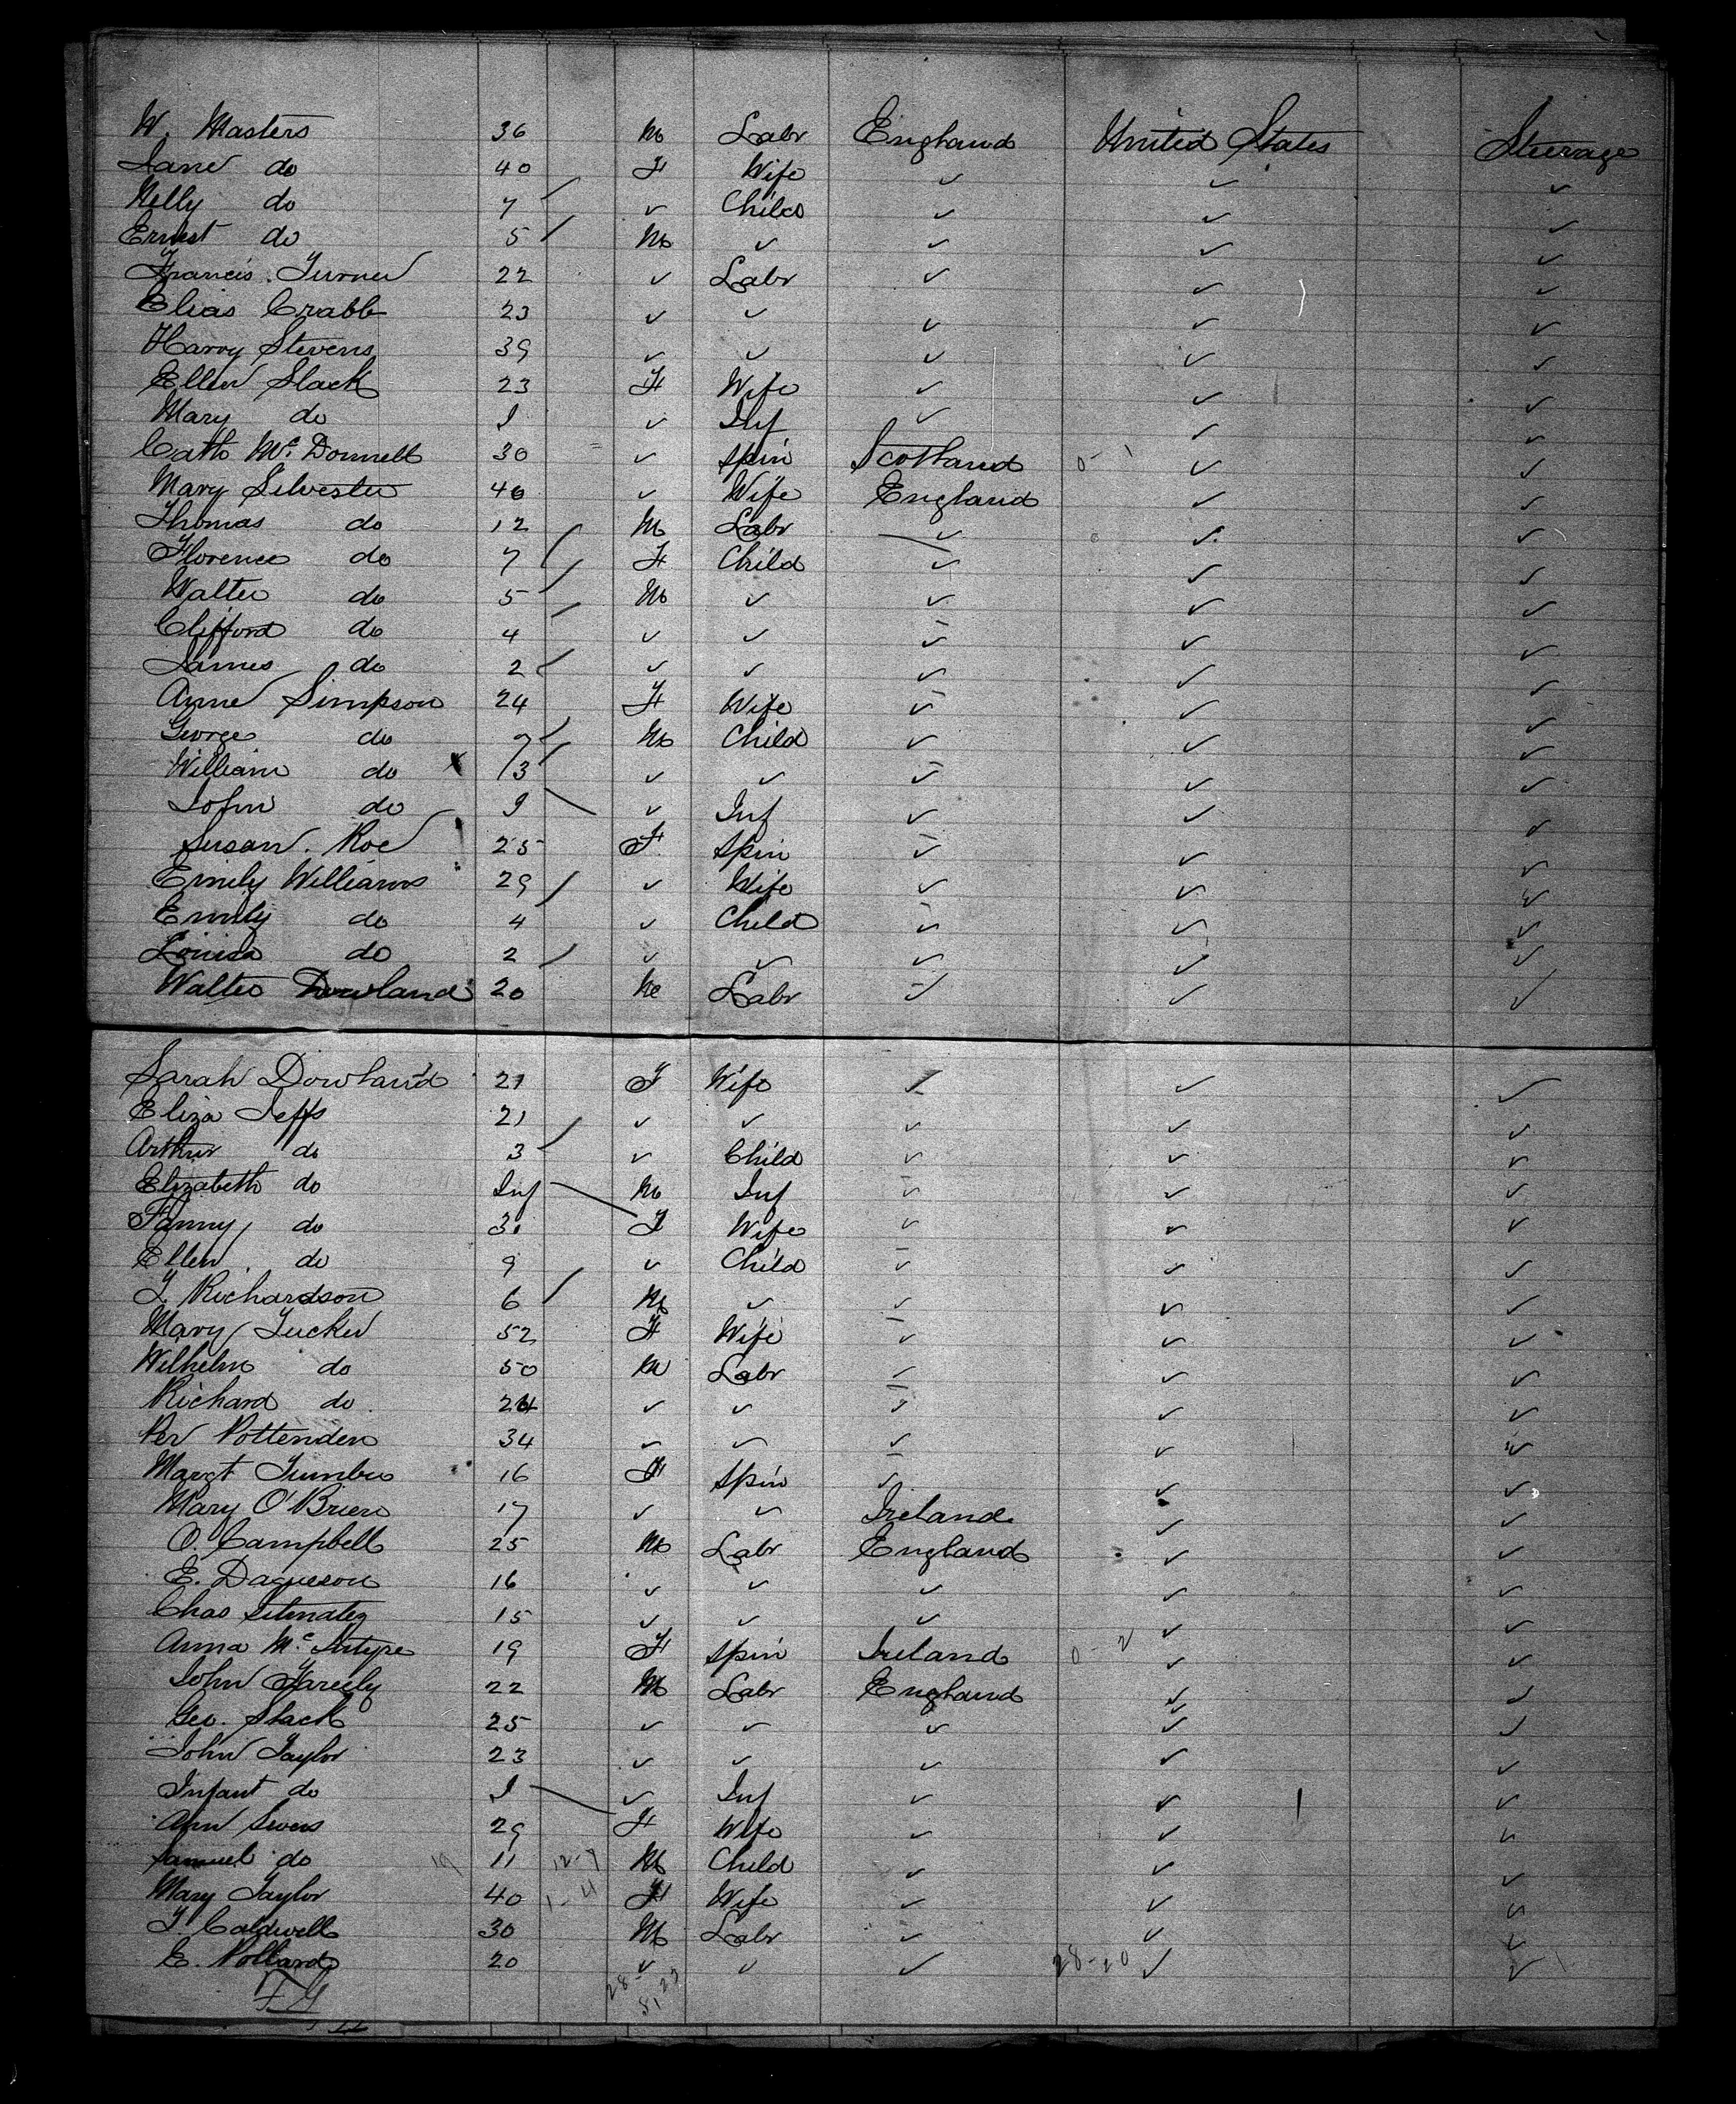 W. Masters 36 M Labr England United States Steerage
Jane do 40 F Wife ✓ ✓ ✓
Nelly do 7 ✓ Child ✓ ✓ ✓
Ernest do 5 M ✓ ✓ ✓ ✓
Francis Turner 22 ✓ Labr ✓ ✓ ✓
Elias Crabb 23 ✓ ✓ ✓ ✓ ✓
Harry Stevens 39 ✓ ✓ ✓ ✓ ✓
Ellen Slack 23 F Wife ✓ ✓ ✓
Mary do I ✓ Inf ✓ ✓ ✓
Cath Mc Donnell 30 ✓ Spin Scotland ✓ ✓
Mary Silvester 40 ✓ Wife England ✓ ✓
Thomas do 12 M Labr ✓ ✓ ✓
Florence do 7 F Child ✓ ✓ ✓
Walter do 5 M ✓ ✓ ✓ ✓
Clifford do 4 ✓ ✓ ✓ ✓ ✓
James do 2 ✓ ✓ ✓ ✓ ✓
Anne Simpson 24 F Wife ✓ ✓ ✓
George do 7 M Child ✓ ✓ ✓
William do 3 ✓ ✓ ✓ ✓ ✓
John do I ✓ Inf ✓ ✓ ✓
Susan Roe 25 F Spin ✓ ✓ ✓
Emily Williams 29 ✓ Wife ✓ ✓ ✓
Emily do 4 ✓ Child ✓ ✓ ✓
Louisa do 2 ✓ ✓ ✓ ✓ ✓
Walter Dowland 20 M Labr ✓ ✓ ✓
Sarah Dowland 21 F Wife ✓ ✓ ✓
Eliza Jeffs 21 ✓ ✓ ✓ ✓ ✓
Arthur do 3 ✓ Child ✓ ✓ ✓
Elizabeth do Inf M Inf ✓ ✓ ✓
Fanny do 31 F Wife ✓ ✓ ✓
Ellen do 9 ✓ Child ✓ ✓ ✓
Richardson 6 M ✓ ✓ ✓ ✓
Mary Tucker 52 F Wife ✓ ✓ ✓
Wilhelm do 50 M Labr ✓ ✓ ✓
Richard do 24 ✓ ✓ ✓ ✓ ✓
34 ✓ ✓ ✓ ✓ ✓
Margt 16 F Spin ✓ ✓ ✓
Mary O'Brien 17 ✓ ✓ Ireland ✓ ✓
O. Campbell 25 M Labr England ✓ ✓
E. 16 ✓ ✓ ✓ ✓ ✓
Chas 15 ✓ ✓ ✓ ✓ ✓
Anna Mc Intyre 19 F Spin Ireland 0-2 ✓ ✓
John 22 M Labr England ✓ ✓
Geo. Slack 25 ✓ ✓ ✓ ✓ ✓
John Taylor 23 ✓ ✓ ✓ ✓ ✓
Infant do I ✓ Inf ✓ ✓ ✓
Ann 29 F Wife ✓ ✓ ✓
Samuel do 11 12-7 M Child ✓ ✓ ✓
Mary Taylor 40 1-4 F Wife ✓ ✓ ✓
Caldwell 30 M Labr ✓ ✓ ✓
E. Pollard 20 ✓ ✓ ✓ 28-20 ✓ ✓